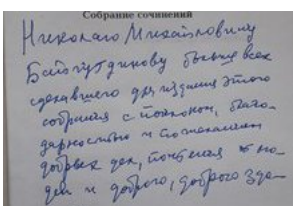 Собрание сочинений
Николаю Михайловичу
Байгутдинову больше всех
сделавшего для издания этого
собрания с поклоном, благо-
дарностью и пожеланием
добрых дел, почтения
и доброго, доброго здо-